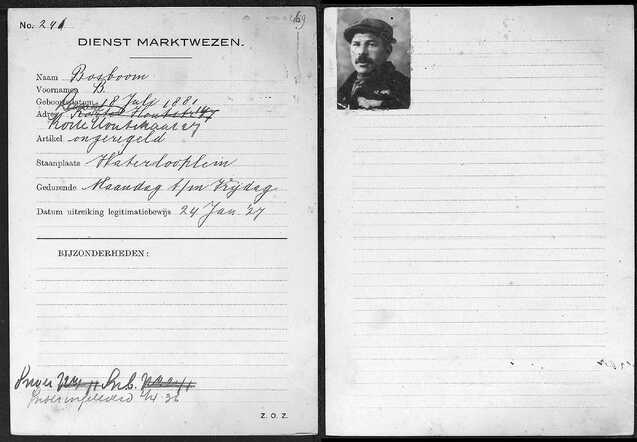 No. 241
DIENST MARKTWEZEN.
Naam Bosboom
Voornamen B.
Geboortedatum 18 Juli 1881
Adres
Korte Houtstraat 27
Artikel ongeregeld
Staanplaats Waterlooplein
Gedurende Maandag t/m Vrijdag
Datum uitreiking legitimatiebewijs 24 Jan. '27
BIJZONDERHEDEN:
Z. O. Z.